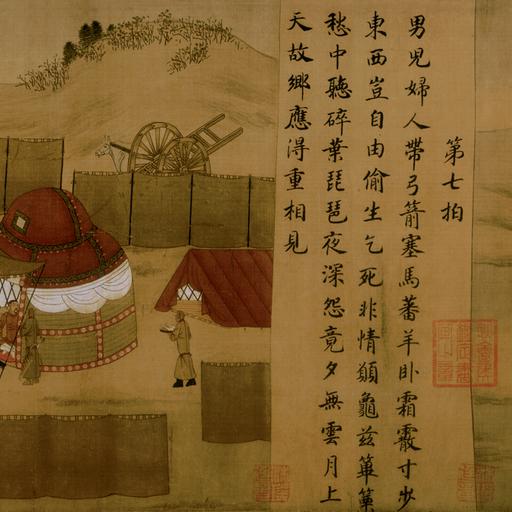 第七拍
男兒婦人帶弓箭塞馬蕃羊卧霜霰寸步
東西豈自由偷生乞死非情願龜茲篳篥
愁中聽碎葉琵琶夜深怨竟夕無雲月上
天故鄉應得重相見